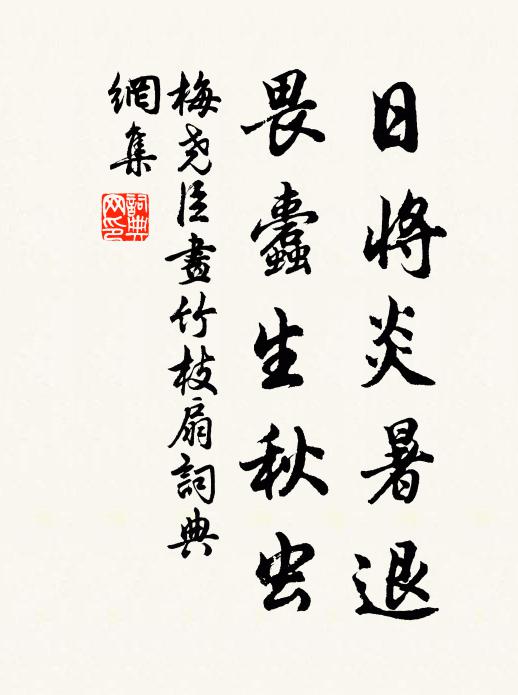 日將炎暑退
畏蠹生秋虫
梅尧臣畫竹枝扇詞典
網集
詞典
网印